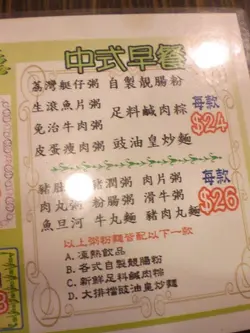 中式早餐
荔灣艇仔粥 自製靚腸粉
生滾魚片粥 足料鹹肉粽
免治牛肉粥
皮蛋瘦肉粥 豉油皇炒麵
每款
$24
豬肚 豬潤粥 肉片粥
肉丸粥 粉腸粥 滑牛粥
魚旦河 牛丸麵 豬肉丸麵
每款
$26
以上粥粉麵皆配以下一款
A. 凍熱飲品
B. 各式自製靚腸粉
C. 新鮮足料鹹肉粽
D. 大排檔豉油皇炒麵